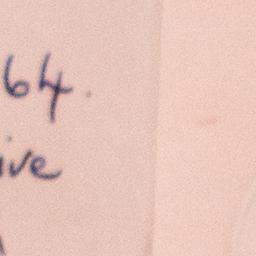 64.
ive